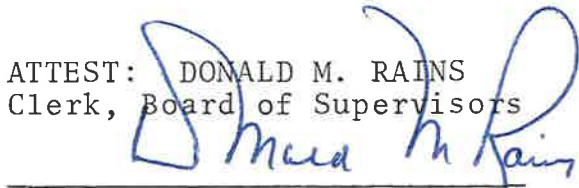 ATTEST: DONALD M. RAINS
Clerk, Board of Supervisors
Donald M Rains